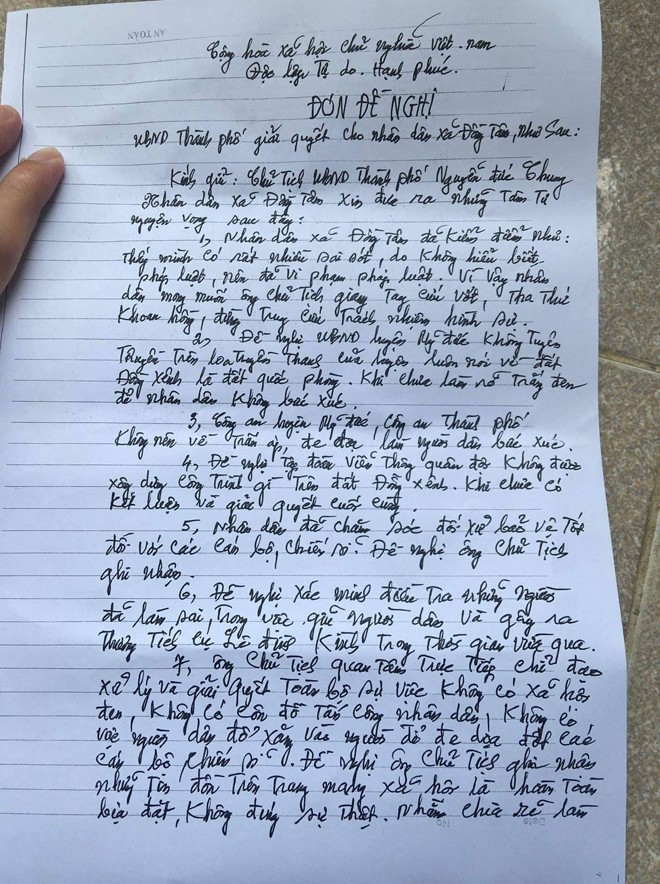 AN TOÀN
Cộng hoà xã hội chủ nghĩa việt-nam
Độc lập Tự do. Hạnh phúc.
ĐƠN ĐỀ NGHỊ
UBND Thành phố giải quyết cho nhân dân xã Đồng Tâm, như sau:
Kính gửi: Chủ Tịch UBND Thành phố Nguyễn đức Chung
Nhân dân xã Đồng Tâm xin đưa ra những Tâm Tư
nguyện vọng sau đây:
1, Nhân dân xã Đồng Tâm đã kiểm điểm như:
Thấy mình có rất nhiều sai sót, do không hiểu biết
pháp luật, nên đã vi phạm pháp luật. Vì vậy nhân
dân mong muốn ông chủ Tịch giang Tay cứu vớt, Tha Thứ
khoan hồng, đừng Truy cứu Trách nhiệm hình sự.
2, Đề nghị UBND huyện Mỹ đức không Tuyên
Truyền Trên loa Truyền Thanh của huyện luôn nói về đất
Đồng Sênh là đất quốc phòng. Khi chưa làm rõ Trắng đen
để nhân dân không bức xúc.
3, Công an huyện Mỹ đức, công an Thành phố
không nên về Trấn áp, đe dọa, làm người dân bức xúc.
4, Đề nghị Tập đoàn viễn Thông quân đội không được
xây dựng công Trình gì Trên đất Đồng Sênh. Khi chưa có
kết luận và giải quyết cuối cùng.
5, Nhân dân đã chăm sóc đối xử bảo vệ Tốt
đối với các cán bộ, chiến sĩ. Đề nghị ông chủ Tịch
ghi nhận.
6, Đề nghị xác minh điều Tra những người
đã làm sai, Trong việc giữ người dân và gây ra
Thương Tích cụ Lê đình Kình Trong Thời gian vừa qua.
7, ông chủ Tịch quan Tâm Trực Tiếp chỉ đạo
xử lý và giải quyết Toàn bộ sự việc không có xã hội
đen, không có côn đồ Tấn công nhân dân, không có
việc người dân đổ xăng vào người để đe dọa đốt các
cán bộ, chiến sĩ. Đề nghị ông chủ Tịch ghi nhận
những Tin đồn Trên Trang mạng xã hội là hoàn Toàn
bịa đặt, không đúng sự Thật. Nhằm chia rẽ làm